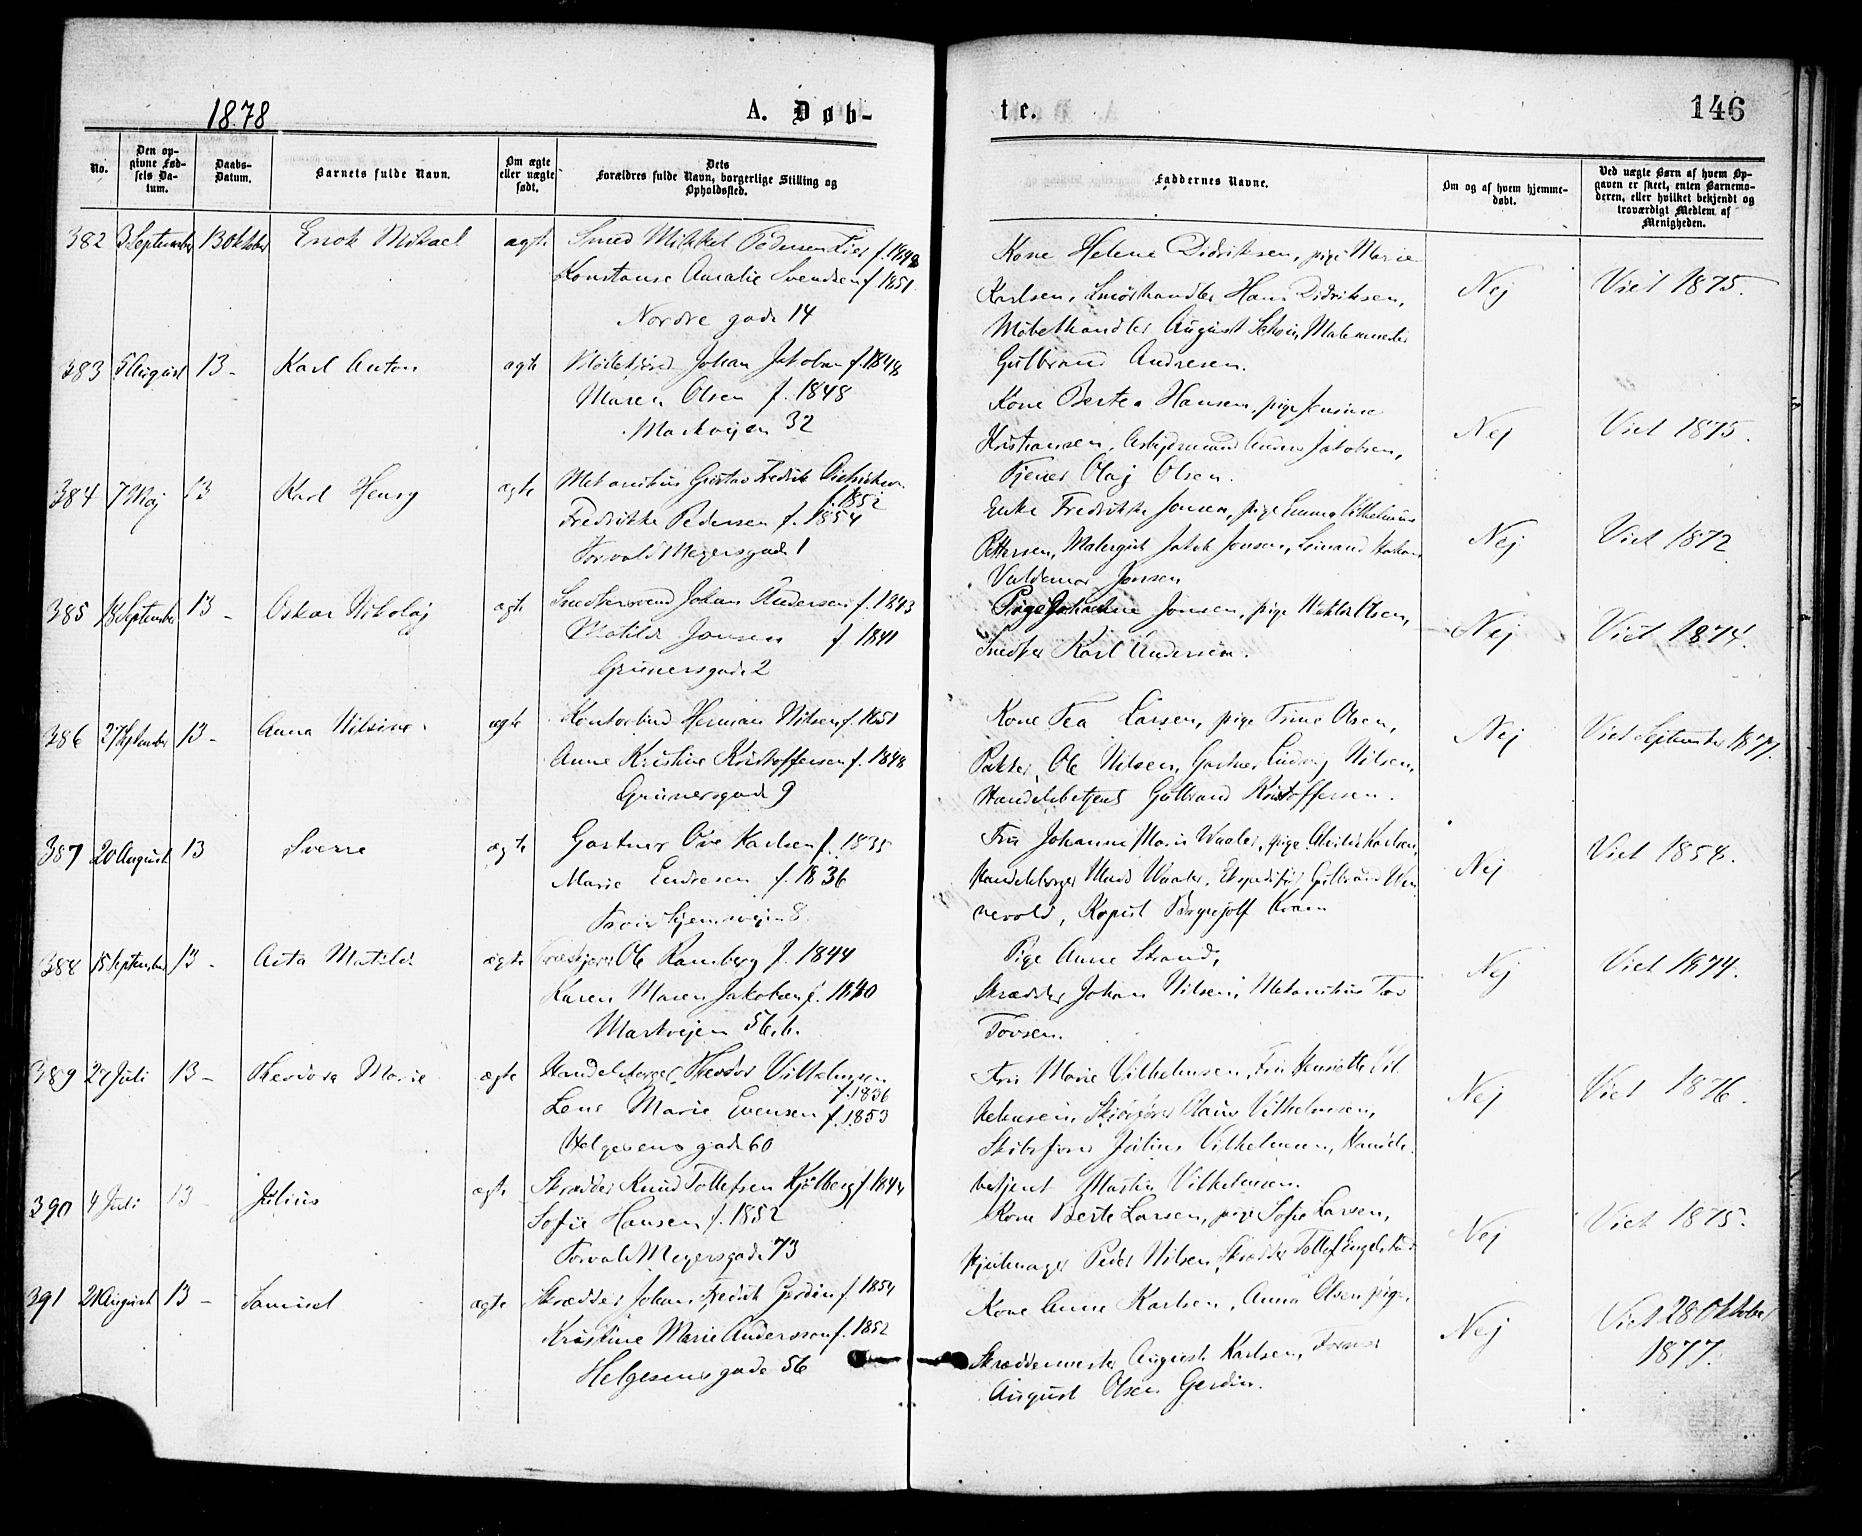 1878
A. Døb-
No.
Den op-
givne Fød-
sels Da-
tum.
Daabs-
Datum.
Barnets fulde Navn.
Om ægte
eller uægte
født.
Dets
Forældres fulde Navn, borgerlige Stilling og
Opholdssted.
382 3 September 13 Oktober Enok Mikael ægte Smed Mikkel Pedersen f. 1848
Konstanse Amalie Svendsen f. 1851.
Nordre gade 14
383 5 August 13 - Karl Anton ægte Johan Jakobsen f. 1848
Maren Olsen f. 1848
Markvejen 32
384 7 Maj 13 Karl Henry ægte Mekanikus Gustav Fredrik Didriksen
f. 1852
Fredrikke Pedersen f. 1854
Torvald Meyersgade 1
385 18 September 13 - Oskar Nikolaj ægte Snedkersvend Johan Andersen f. 1843
Matilde Jonsen f. 1841
Grünersgade 2
386 27 September 13 - Anna Nilsine ægte Kontorbud Herman Nilsen f. 1851
Anne Kristine Kristoffersen f. 1848
Grünersgade 9
387 20 August 13 Sverre ægte Gartner Ove Karlsen f. 1835
Marie Endresen f. 1836
8
388 15 September 13 - Asta Matilde ægte Ole Ramberg f. 1844
Karen Maren Jakobsen f. 1840
Markvejen 56.b.
389 27 Juli 13 - Theodora Marie ægte Handelsborger Theodor Vilhelmsen
f. 1836
Lene Marie Evensen f. 1853
Helgesens gade 60
390 4 Juli 13 - Julius ægte Skrædder Knud Tollefsen Kjølberg f. 1844
Sofie Hansen f. 1852
Torvald Meyersgade 73
391 21 August 13 - Samuel ægte Skrædder Johan Fredrik Gerdin f. 1854
Kristine Marie Andersson f. 1852
Helgesens gade 56
te.
146
Faddernes Navne.
Om og af hvem hjemme-
døbt.
Ved uægte Børn af hvem Op-
gaven er skeet, enten Barnemo-
deren, eller hvilket bekjendt og
troværdigt Medlem af
Menigheden.
Kone Helene Didriksen, pige Marie
Karlsen, Smørhandler Hans Didriksen, Nej Viet 1875.
Møbelhandler August Malermester
Gulbrand Andresen.
Kone Bertea Hansen, pige Jensine
Kristiansen, Arbejdsmand Anders Jakobsen, Nej Viet 1875.
Tjener Olaj Olsen.
Enke Fredrikke Jonsen, pige Emma Vilhelmine
Pettersen, Malergut Jakob Jonsen, Sømand Hakon Nej Viet 1872
Valdemar Jonsen
Pige Johanne Jonsen, pige Matilde Olsen, Nej Viet 1874.
Snedker Karl Andersen.
Kone Tea Larsen, pige Trine Olsen, Nej Viet September 1877.
Pakker Ole Nilsen, Gartner Ludvig Nilsen,
Handelsbetjent Gulbrand Kristoffersen.
Fru Johanne Marie Waaler, pige Karlsen, Viet 1858.
Handelsborger Mads Waaler, Ekspeditør Gulbrand Wen- Nej
nevold, Kopist Brynjolf
Pige Anne Strand, Nej Viet 1874.
Skrædder Johan Nilsen, Mekanikus Tov
Tovsen.
Fru Marie Vilhelmsen, Fru Henriette Vil-
helmsen, Claus Vilhelmsen, Nej Viet 1876.
Skibsfører Julius Vilhelmsen, Handels-
betjent Martin Vilhelmsen.
Kone Berte Larsen, pige Sofie Larsen, Nej Viet 1875.
Hjulmager Peder Nilsen, Skrædder Tollef
Kone Anne Karlsen, Anna Olsen pige, Nej Viet 28 Oktober
Skræddermester August Karlsen, 1877.
August Olsen Gerdin.